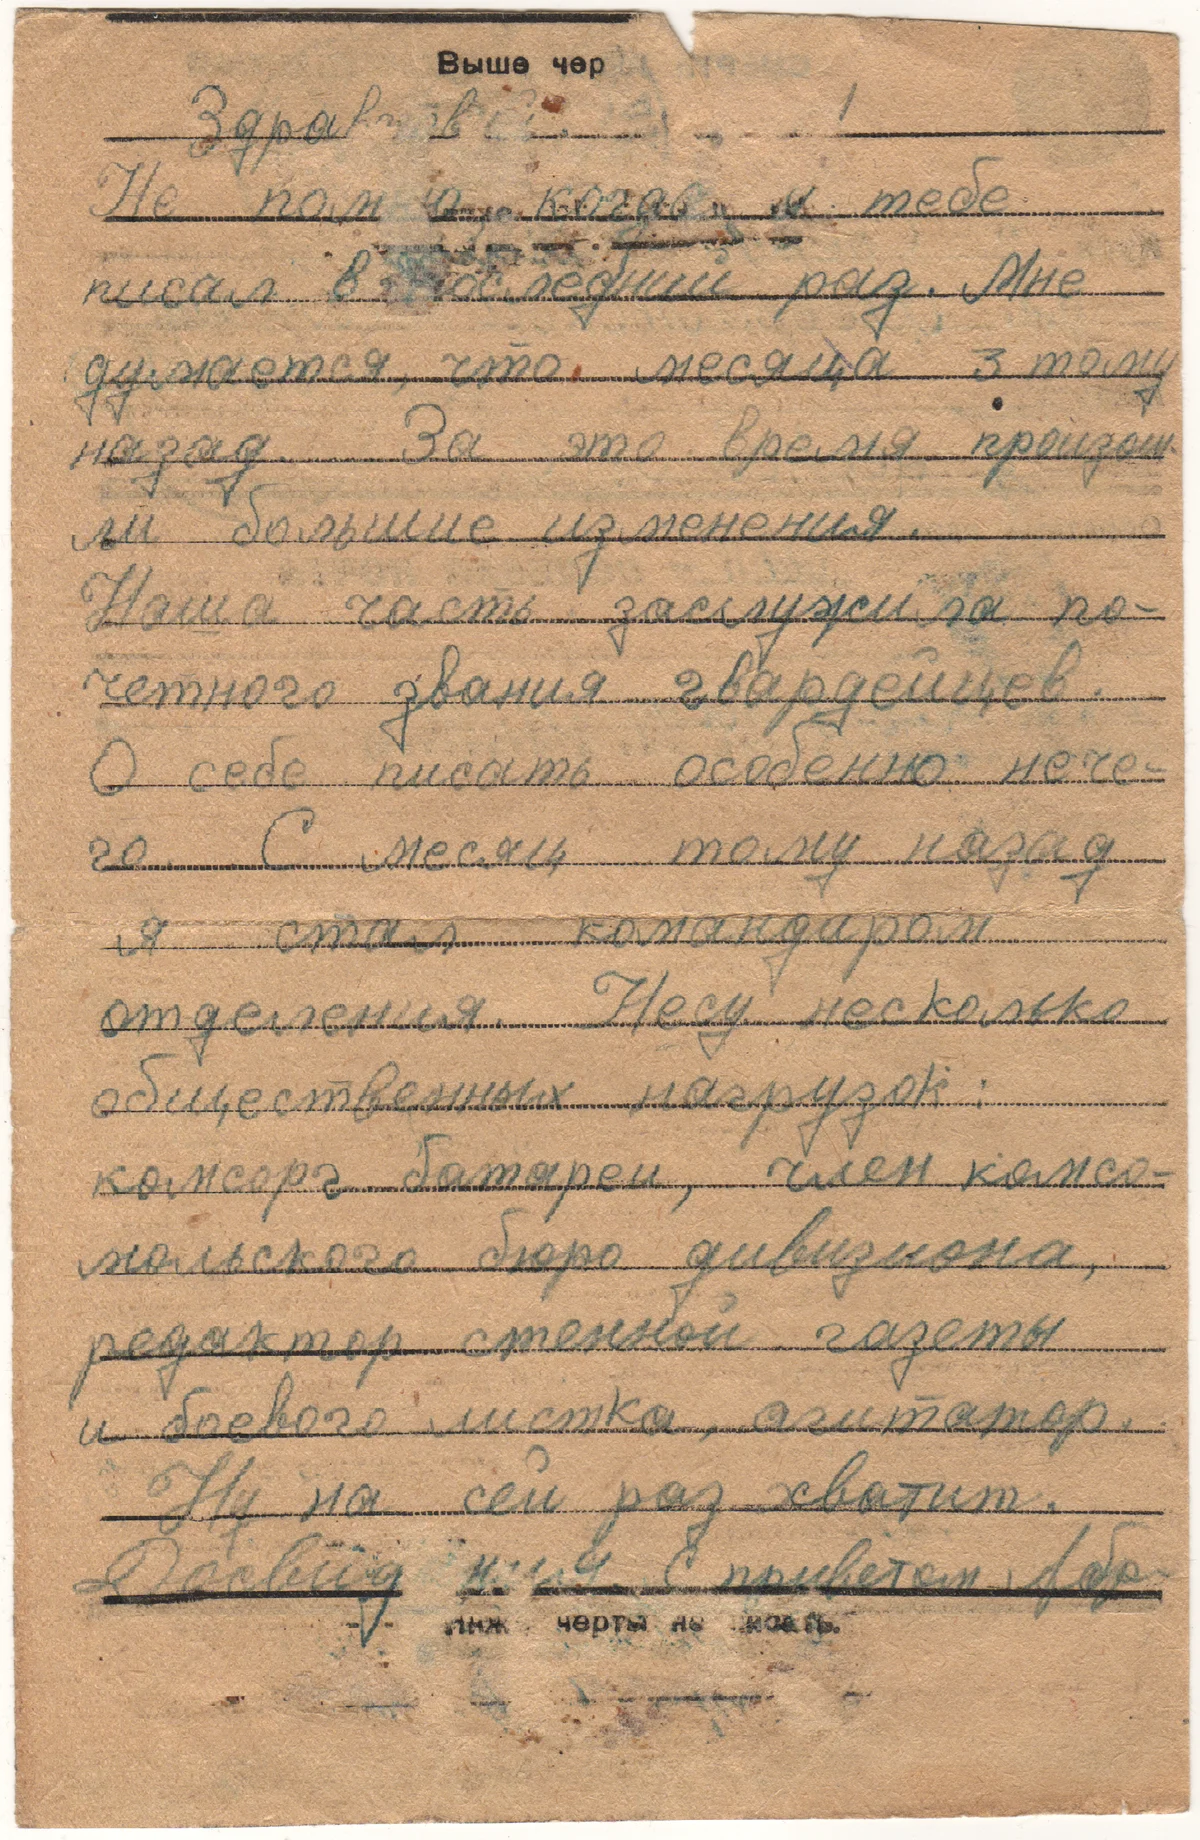 Выше чер
Не помню когда я тебе
писал в последний раз. Мне
думается, что месяца 3 тому
назад. За это время произош-
ли большие изменения.
Наша часть заслужила по-
четного звания гвардейцев.
О себе писать особенно нече-
го. С месяц тому назад
я стал командиром
отделения. Несу несколько
общественных нагрузок:
комсорг батареи, член комсо-
мольского бюро дивизиона,
редактор стенной газеты
и боевого листка, агитатор.
Ну на сей раз хватит.
С приветом
черты